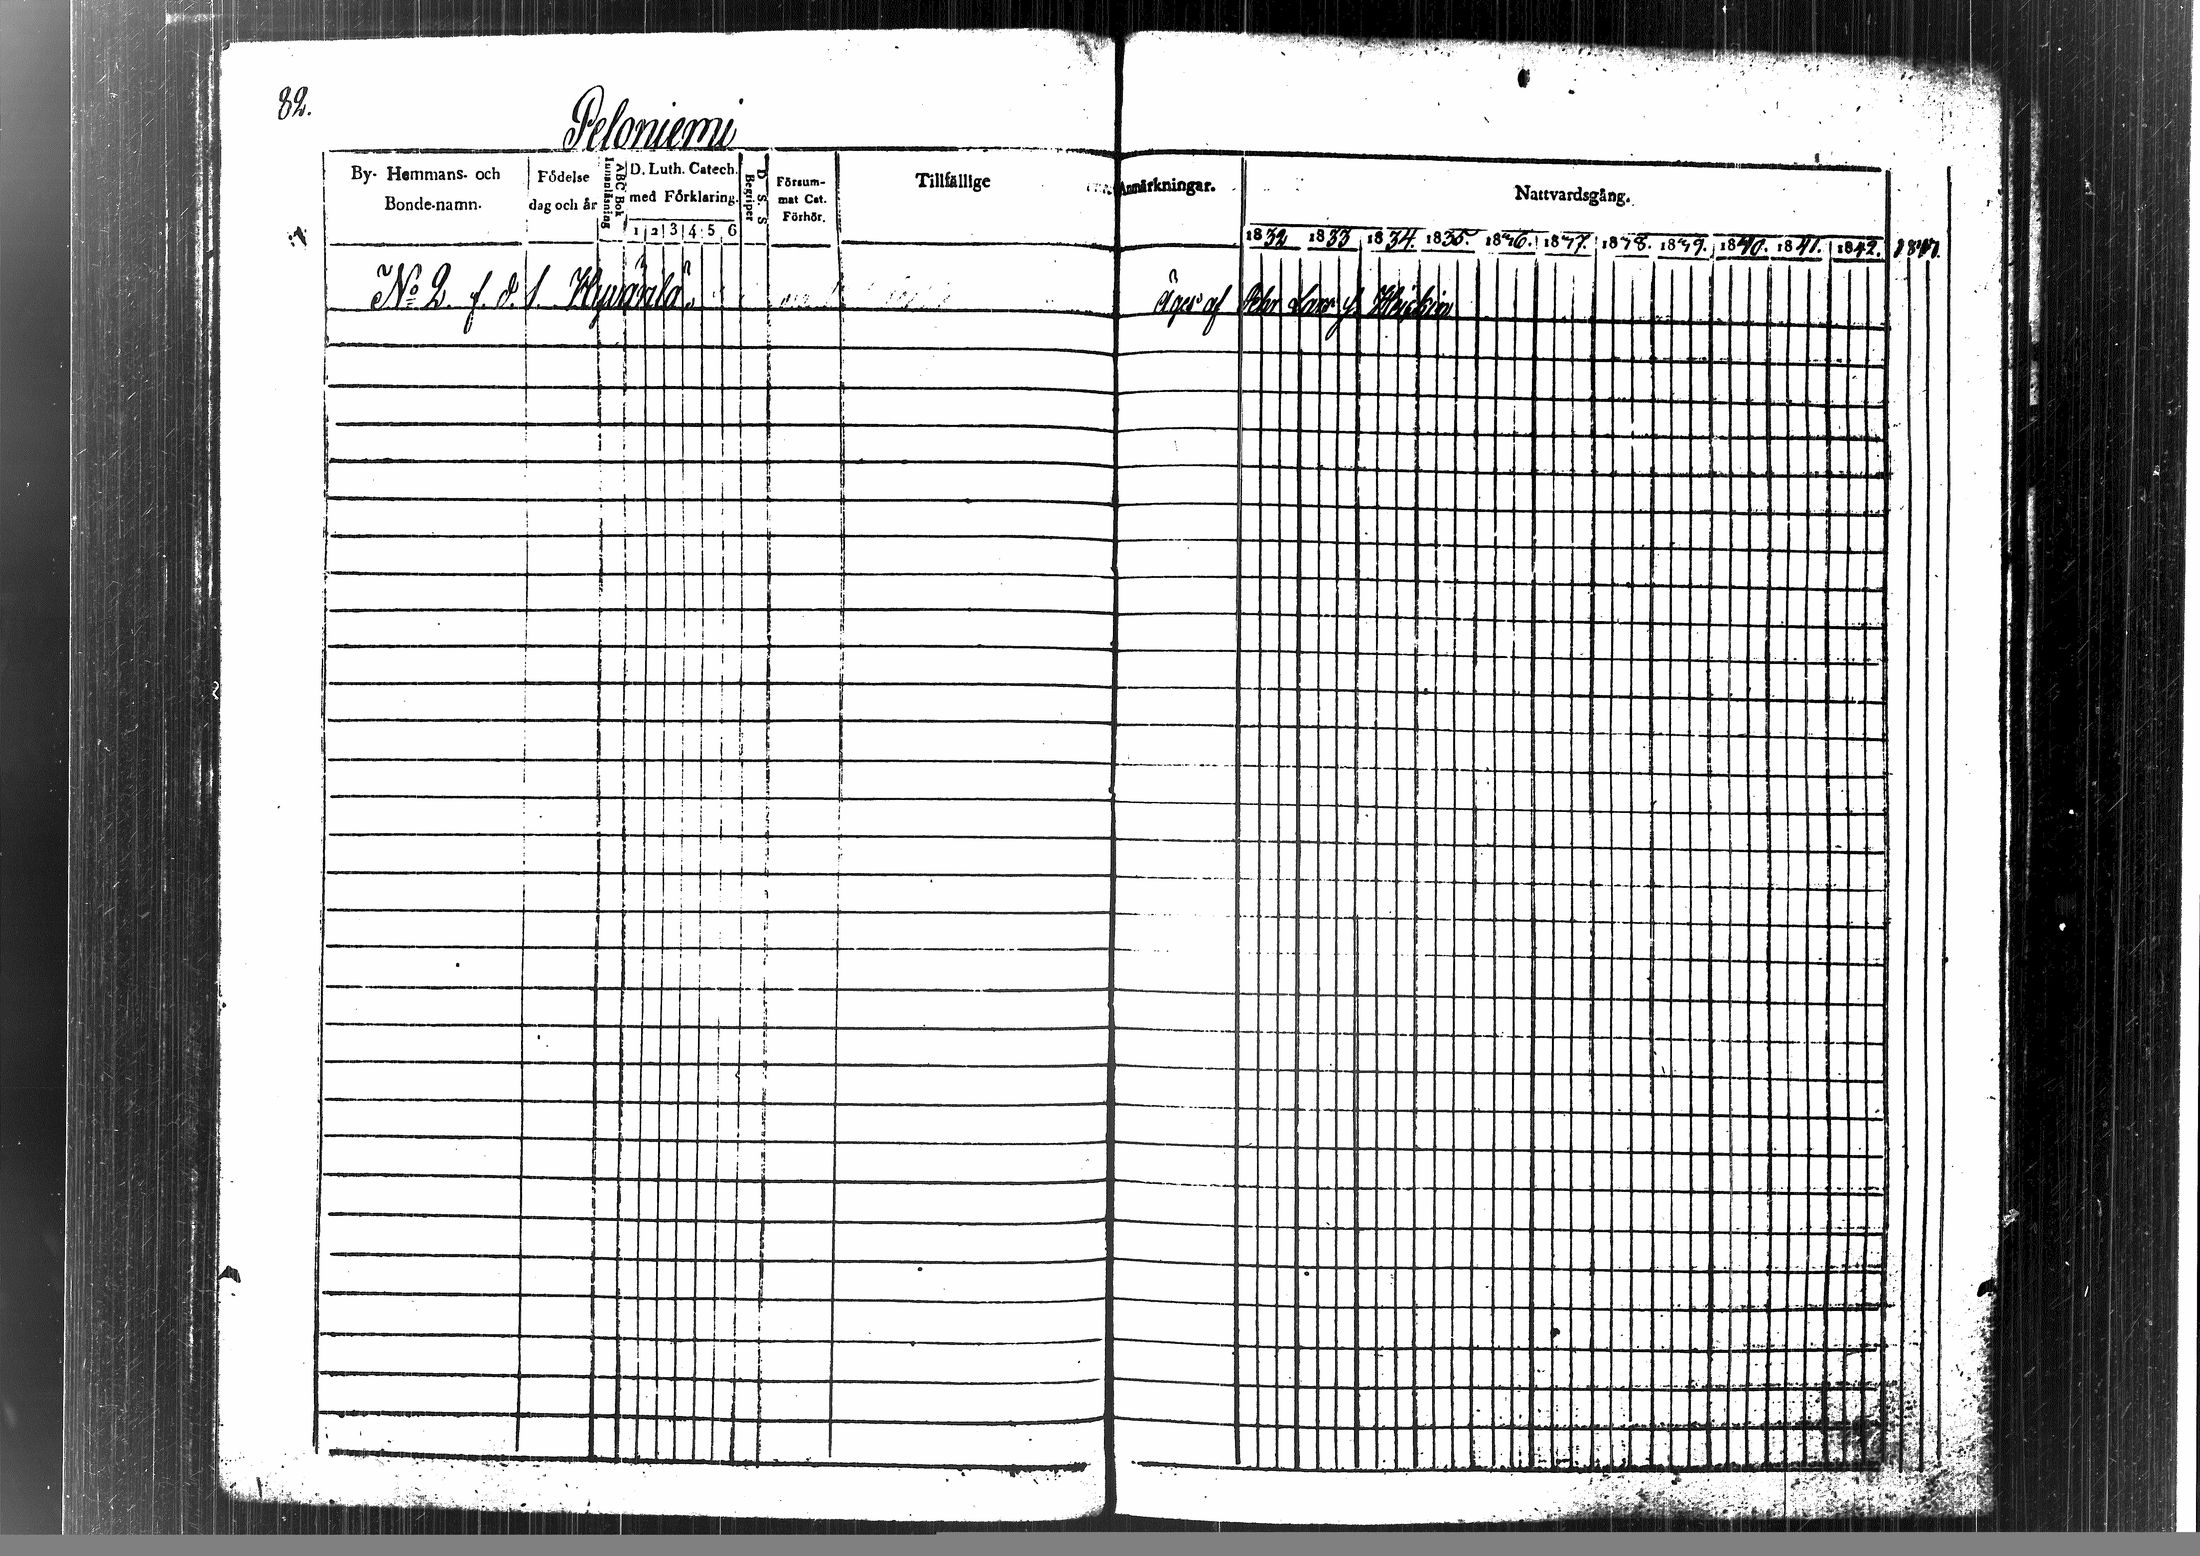 82.
Peloniemi
By- Hemmans- och Bonde-namn.
Födelse dag och år
Innanläsning
ABC Bok
D. Luth. Catech. med Förklaring.
1 2 3 4 5 6
Begriper
D. S. S
Försum-
mat Cat.
Förhör.
Tillfällige
Anmärkningar.
Nattvardsgång.
1832 1833 1834. 1835. 1836. 1837. 1838. 1839. 1840. 1841. 1842.
No 2. f. d. 1. Hyvärilä.
Äges af Lars Heiskin